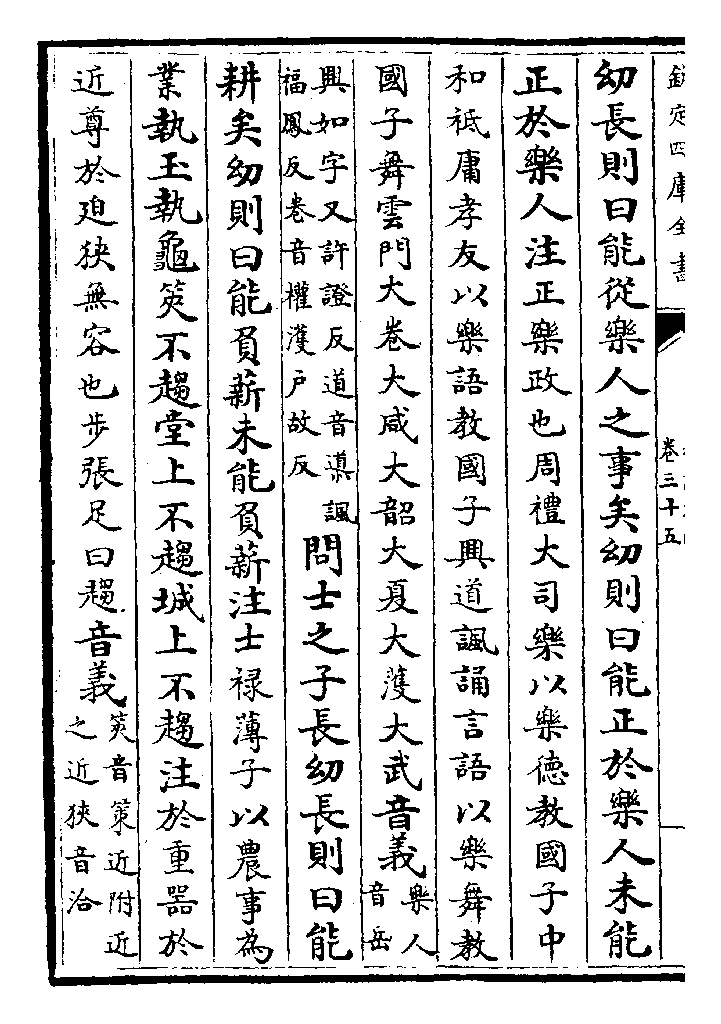 欽定四庫全書
卷三十五
幼長則曰能從樂人之事矣幼則曰能正於樂人未能
正於樂人注正樂政也周禮大司樂以樂德教國子中
和祗庸孝友以樂語教國子興道諷誦言語以樂舞教
國子舞雲門大卷大咸大韶大夏大濩大武音義樂人音岳
興如字又許證反道音導諷福鳳反卷音權濩户故反問士之子長幼長則曰能
耕矣幼則曰能負薪未能負薪注士禄薄子以農事為
業執玉執龜筴不趨堂上不趨城上不趨注於重器於
近尊於迫狹無容也步張足曰趨音義筴音策近附近之近狹音洽